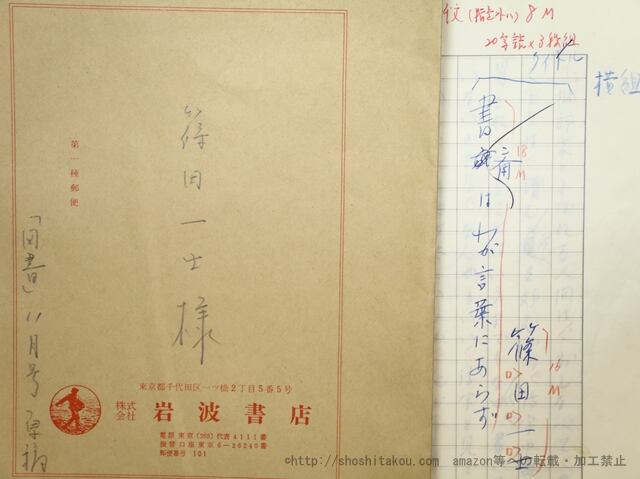 篠田一士様
第一種郵便
「図書」11月号 原稿
東京都千代田区一ツ橋2丁目5番5号
株式会社 岩波書店
電話 東京(265)代表4111番
振替口座東京6-26240番
郵便番号 101
(指定外ハ) 8M
20字詰×3段組
タイトル
横組
書斎はわが言葉にあらず
18M
篠田一士
16M
©http://shoshitakou.com amazon等への転載・加工禁止